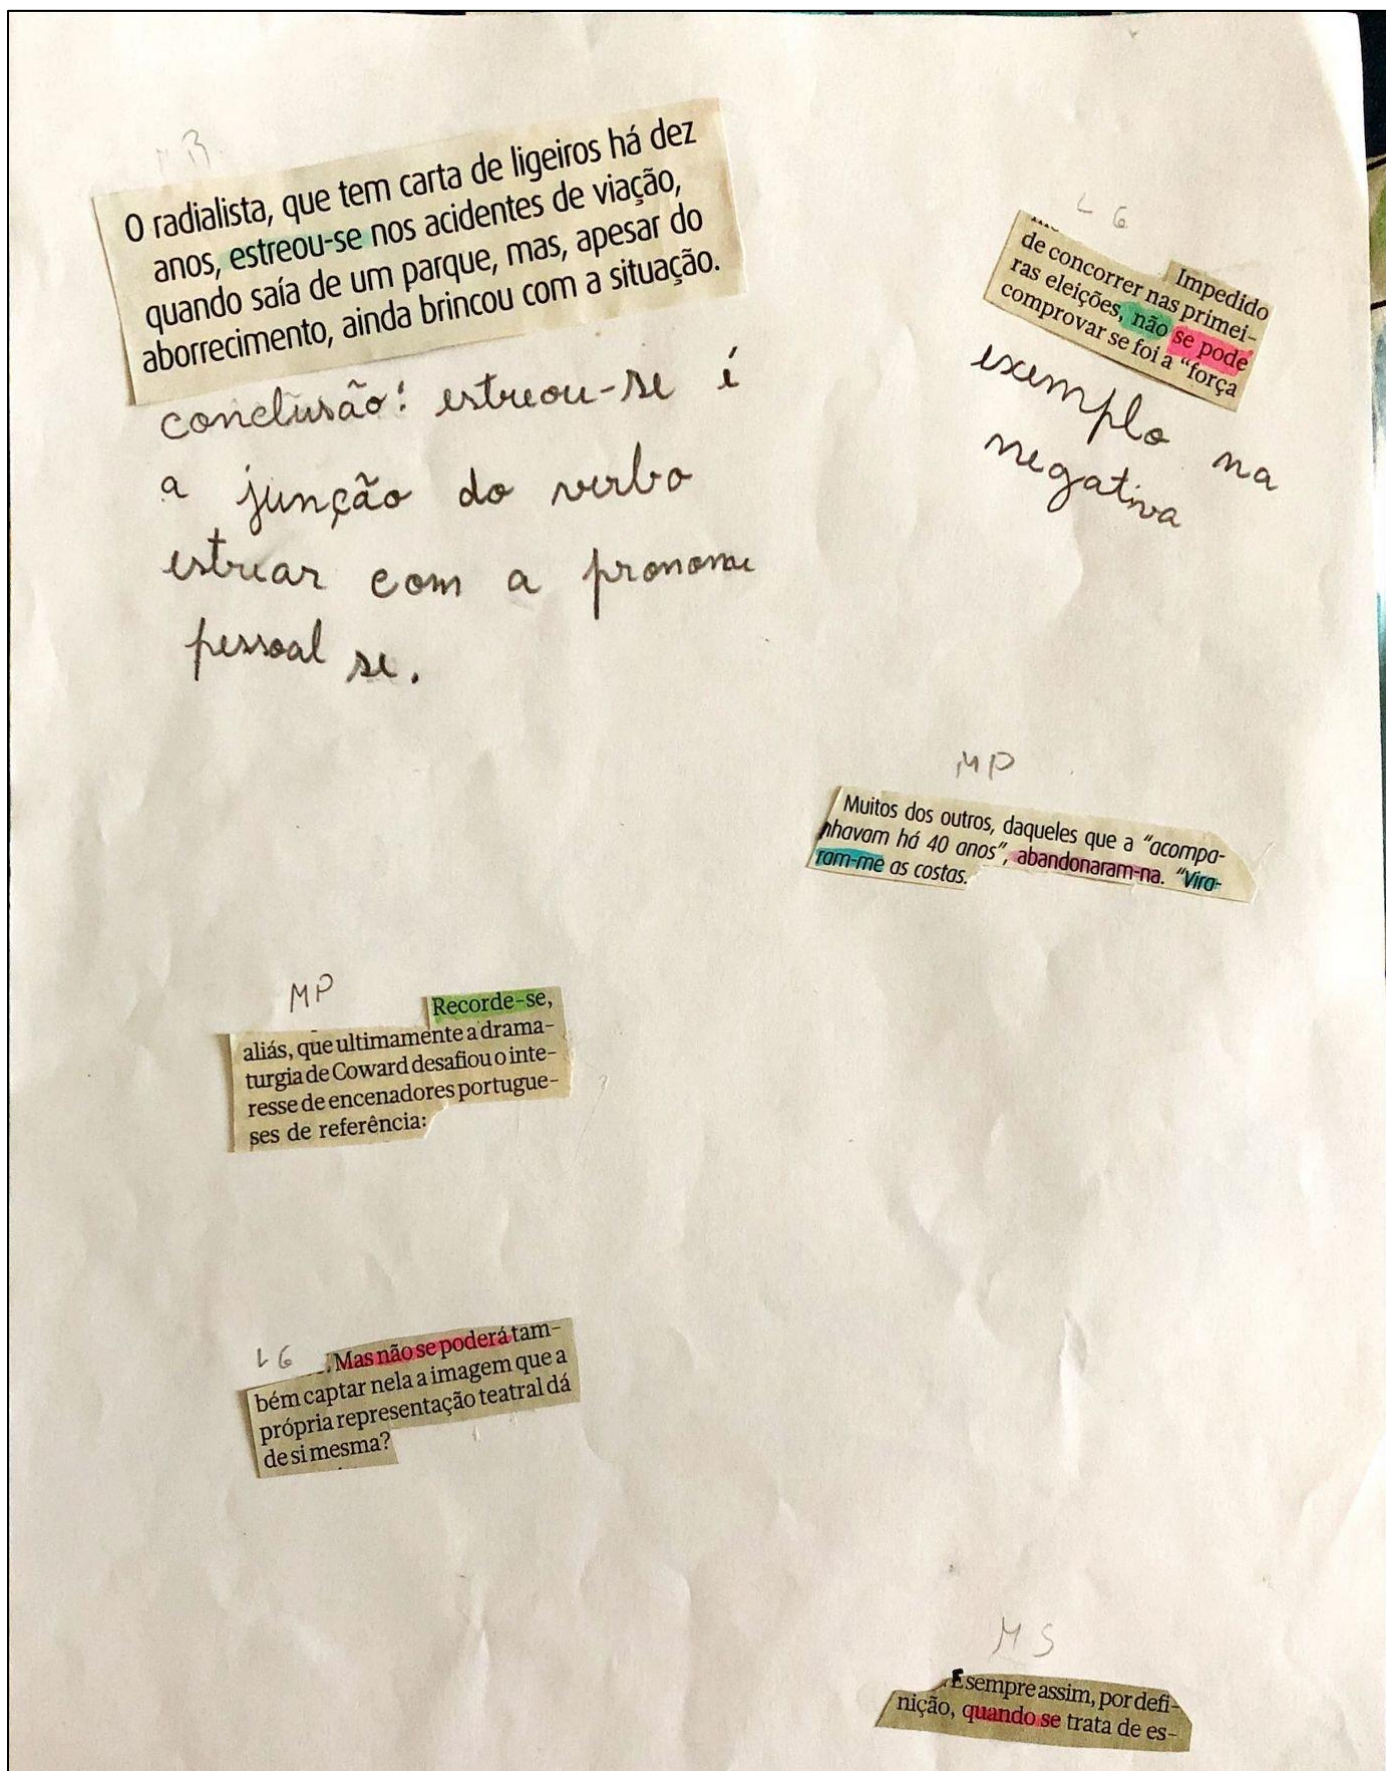 O radialista, que tem carta de ligeiros há dez
anos, estreou-se nos acidentes de viação,
quando saía de um parque, mas, apesar do
aborrecimento, ainda brincou com a situação.
conclusão: estreou-se é
a junção do verbo
estriar com a pronome
pessoal se.
L G
Impedido
de concorrer nas primei-
ras eleições, não se pode
comprovar se foi a "força
exemplo na
negativa
MP
Muitos dos outros, daqueles que a "acompa-
nhavam há 40 anos", abandonaram-na. "Vira-
ram-me as costas.
MP
Recorde-se,
aliás, que ultimamente a drama-
turgia de Coward desafiou o inte-
resse de encenadores portugue-
ses de referência:
LG
. Mas não se poderá tam-
bém captar nela a imagem que a
própria representação teatral dá
de si mesma?
MS
E sempre assim, por defi-
nição, quando se trata de es-